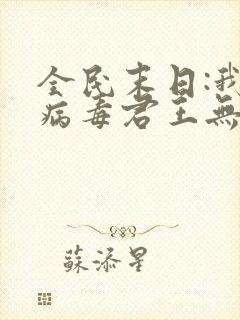 全民末日:我
病毒君王無
蘇添星